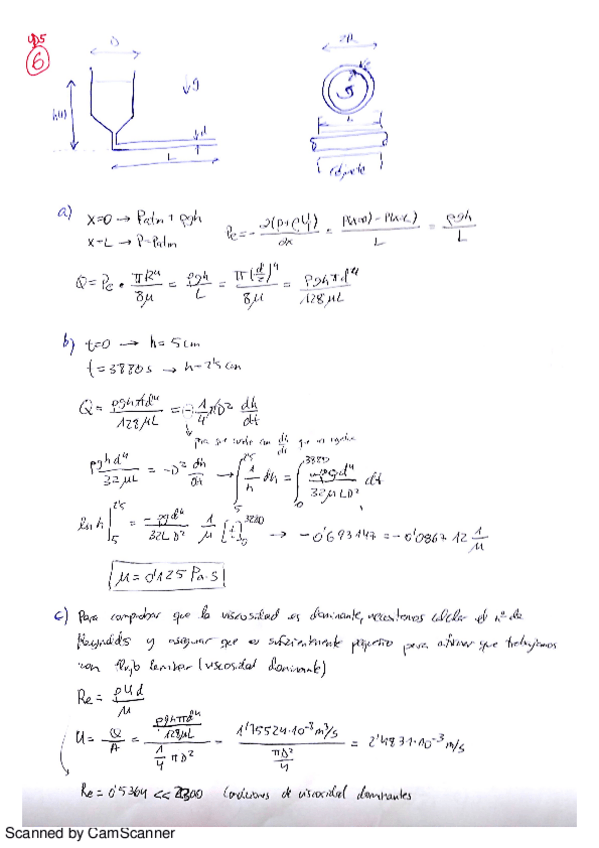 6
D
h(t)
↓g
d
L
2R
L
a) x=0 → Patm + ρgh
x=L → P=Patm
Pe = - ∂(P+ρU) / dx = P(x=0) - P(x=L) / L = ρgh / L
Q = Pe · πR⁴ / 8μ = ρgh / L = π(d/2)⁴ / 8μ = ρghπd⁴ / 128μL
b) t=0 → h = 5cm
t = 3880s → h = 2'5cm
Q = ρghπd⁴ / 128μL = - 1/4 πD² dh/dt
ρghd⁴ / 32μL = -D² dh/dt → ∫ 1/h dh = ∫ -ρgd⁴ / 32μLD² dt
ln h |₅^2'5 = -ρgd⁴ / 32LD² 1/μ [t]₀^3880 → -0'693147 = -0'086712 1/μ
μ = 0'125 Pa·s
c) Para comprobar que la viscosidad es dominante, necesitamos calcular el nº de
Reynolds y asegurar que es suficientemente pequeño para afirmar que trabajamos
con flujo laminar (viscosidad dominante)
Re = ρUd / μ
U = Q/A = ρghπd⁴ / 128μL / 1/4 πD² = 1'75524·10⁻⁸ m³/s / πD²/4 = 2'4831·10⁻³ m/s
Re = 0'5364 << 2300 Condiciones de viscosidad dominantes
Scanned by CamScanner